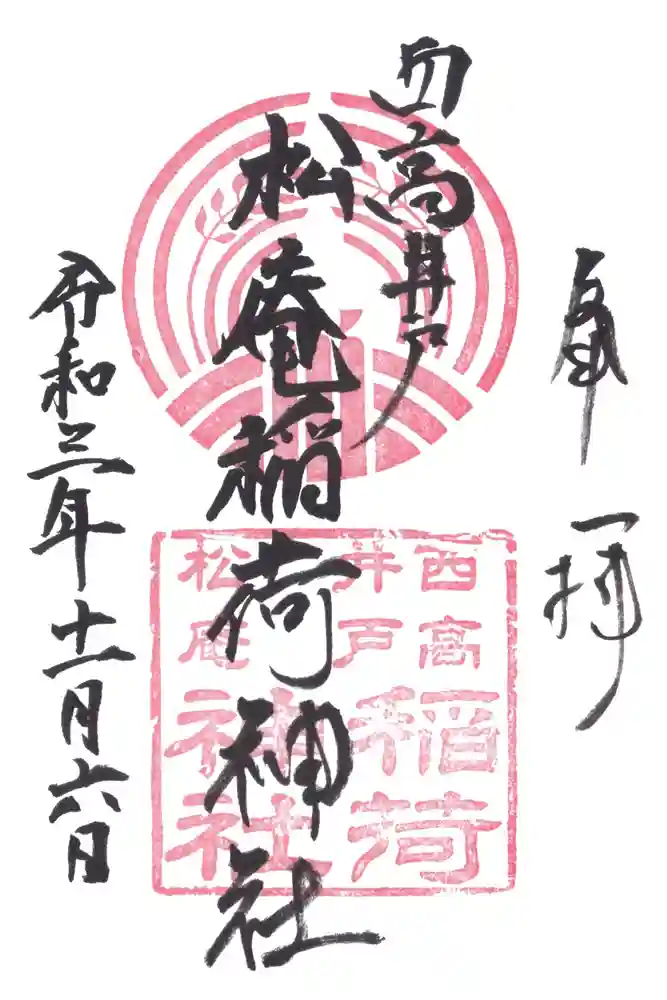 奉拝
西高井戸
松庵稲荷神社
令和三年十一月六日
西高
井戸
松庵
稲荷
神社